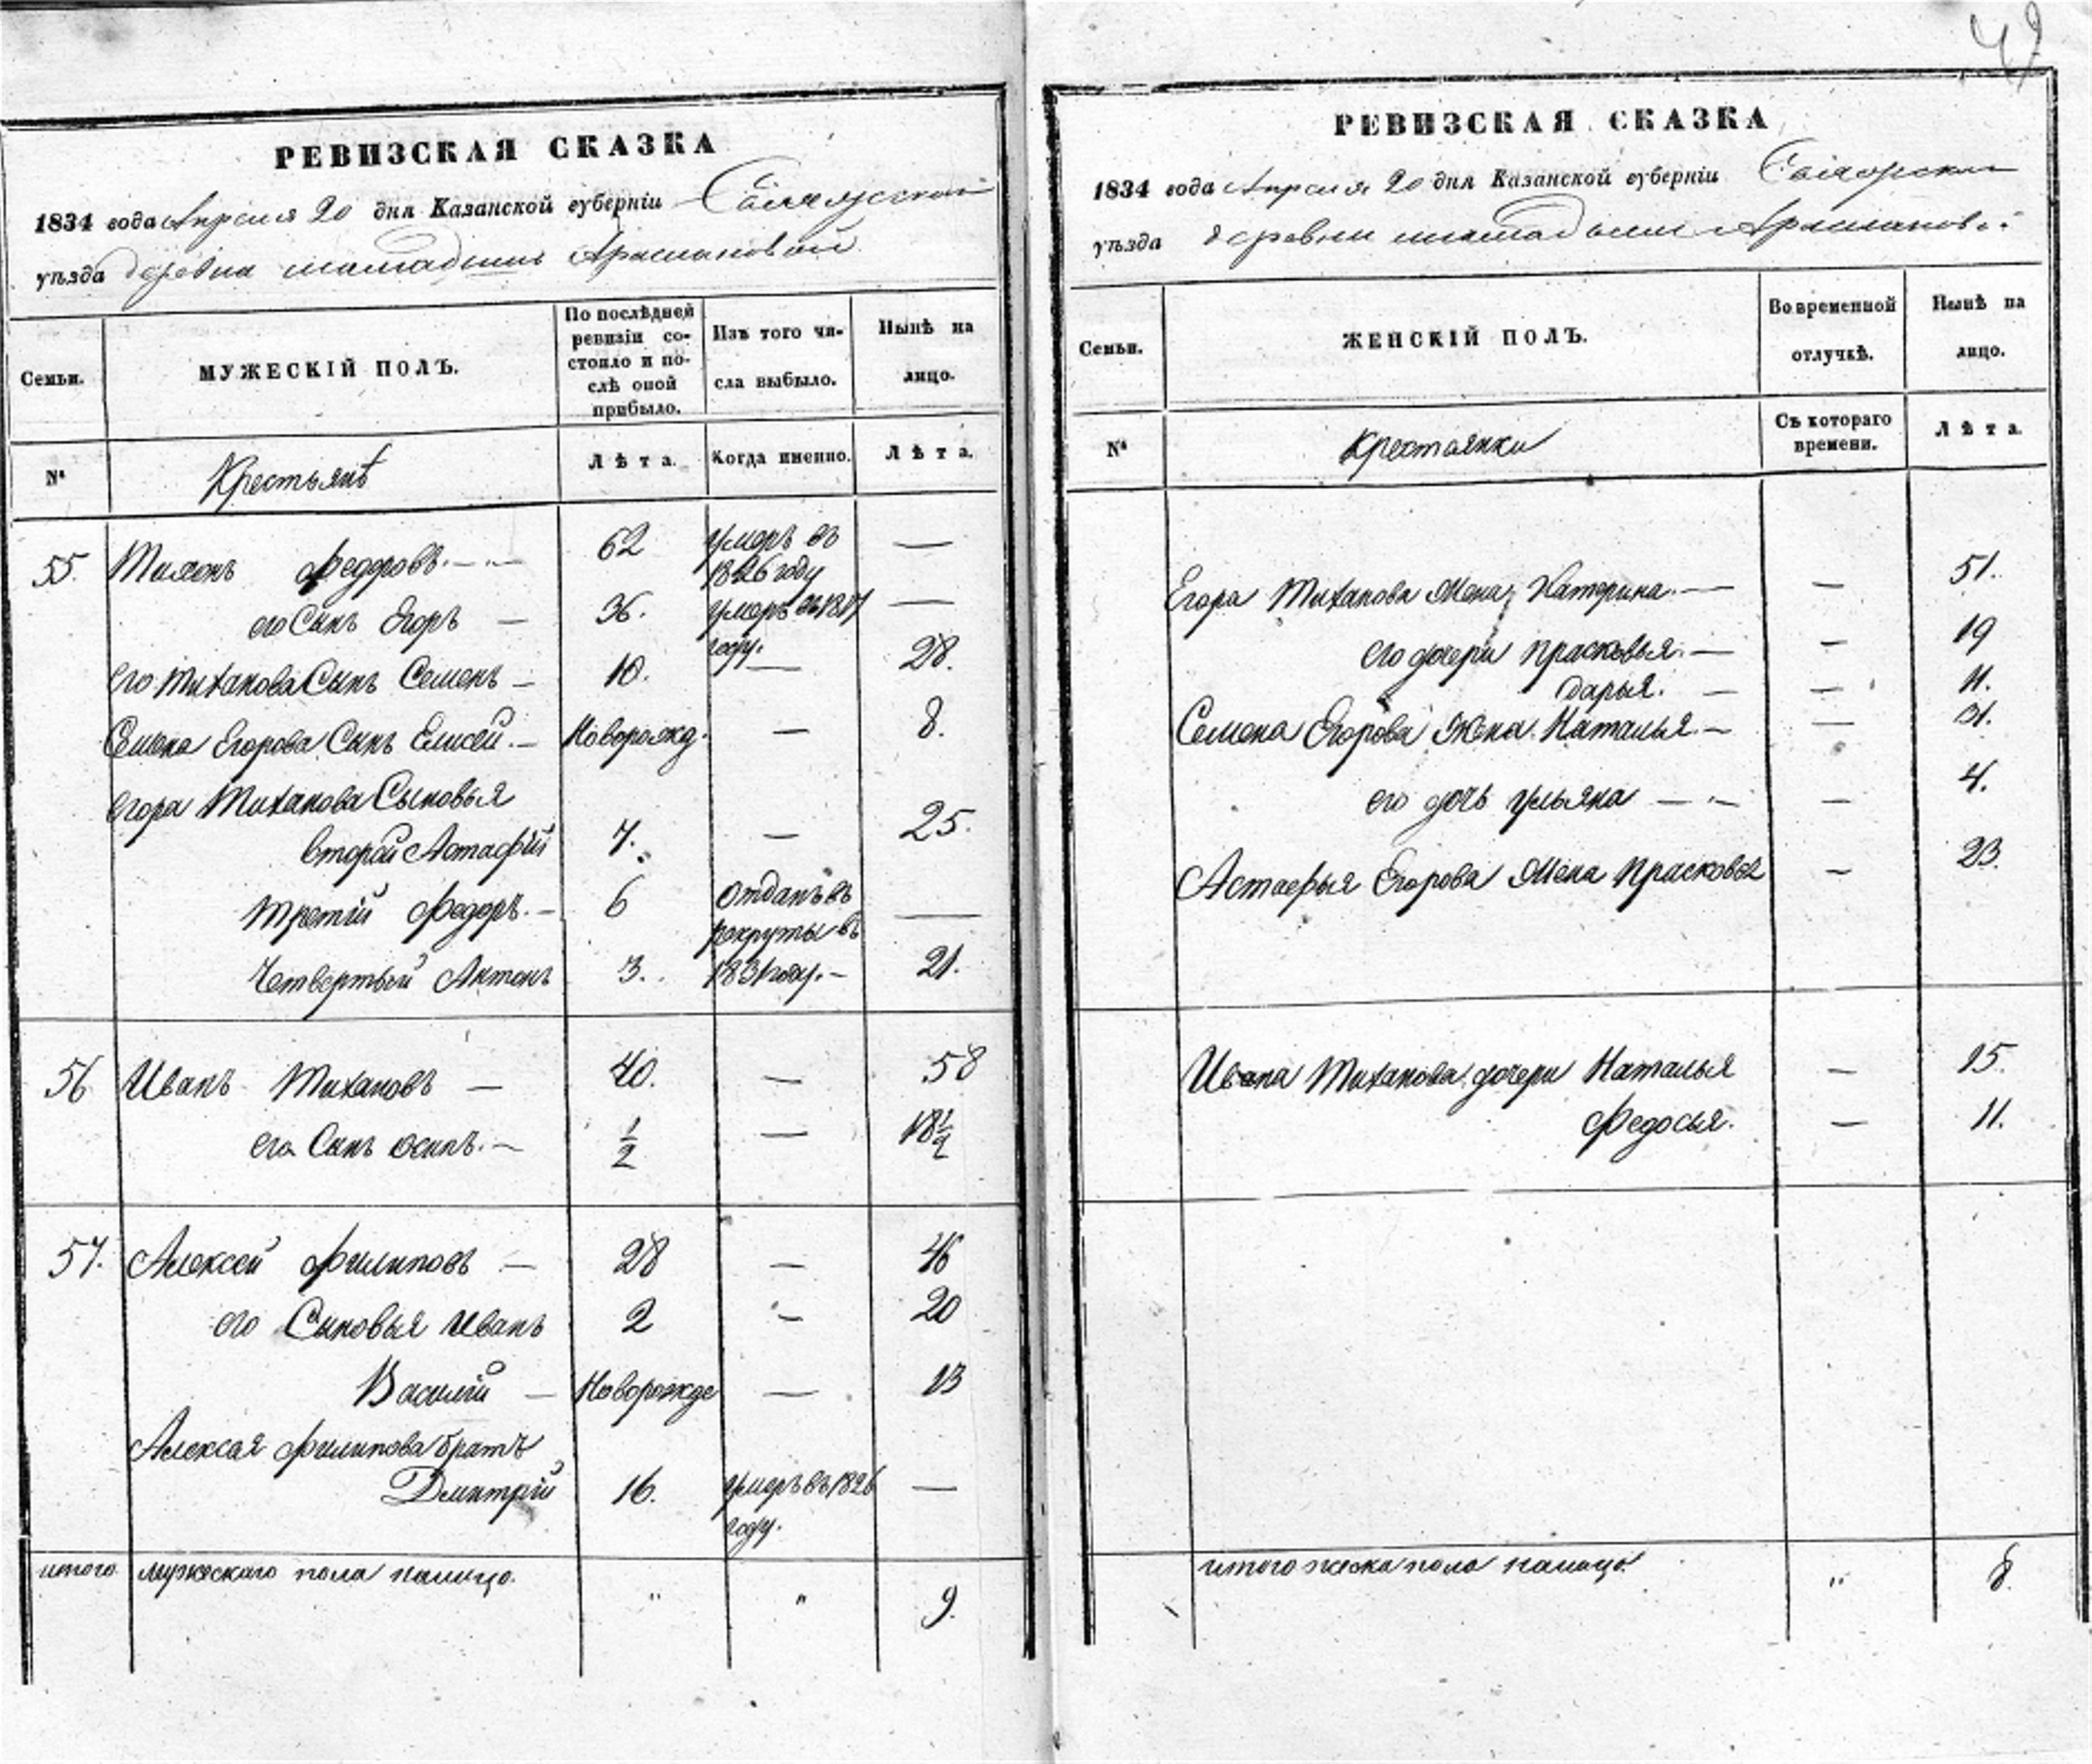 РЕВИЗСКАЯ СКАЗКА
1834 года Апреля 20 дня Казанской губернiи
уѣзда деревни
Семьи.
МУЖЕСКІЙ ПОЛЪ.
По послѣдней ревизiи состояло и послѣ оной прибыло.
Изъ того числа выбыло.
Нынѣ на лицо.
№
Крестьянѣ
Лѣта.
Когда именно.
Лѣта.
55. Тихонъ Федоровъ. 62 умеръ въ 1826 году —
его Сынъ Егоръ — 36. умеръ въ году. —
его Тиханова Сынъ Семенъ — 10. — 28.
Семена Егорова Сынъ Елисей. — Новорожд. — 8.
Егора Тиханова Сыновья
второй Астафiй 7. — 25.
Третiй Федоръ. — 6 Отданъ въ рекруты въ 1831 году. — —
Четвертый Антонъ 3. 21.
56 Иванъ Тихановъ — 40. — 58
его Сынъ Осипъ. — 1/2 — 18 1/2
57. Алексей Филиповъ — 28 — 46
его Сыновья Иванъ 2 — 20
Василiй — Новорожде — 13
Алексая Филипова братъ
Дмитрiй 16. умеръ въ 1826 году. —
итого мужескаго пола налицо. " " 9.
42
РЕВИЗСКАЯ СКАЗКА
1834 года Апреля 20 дня Казанской губернiи
уѣзда деревни
Семьи.
ЖЕНСКІЙ ПОЛЪ.
Во временной отлучкѣ.
Нынѣ на лицо.
№
Крестьянки
Съ котораго времени.
Лѣта.
Егора Тиханова Жена Катерина. — — 51.
его дочери Прасковья. — — 19
Дарья. — — 11.
Семена Егорова Жена Наталья — — 31.
его дочь Ульяна — — 4.
Астафья Егорова Жена Прасковья — 23.
Ивана Тиханова дочери Наталья — 15.
Федосья. — 11.
итого женска пола налицо. " 8.